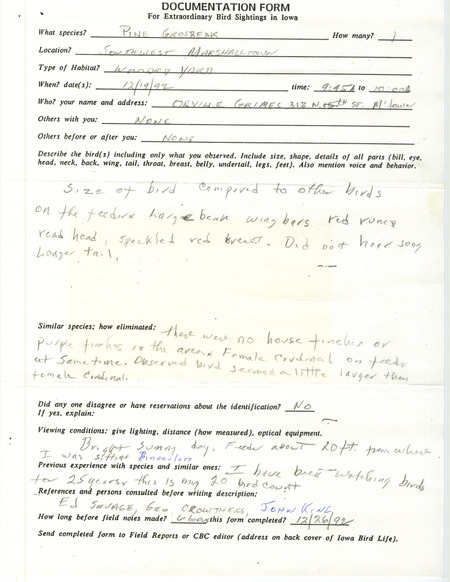 DOCUMENTATION FORM
For Extraordinary Bird Sightings in Iowa
What species? PINE GROSBEAK How many? 1
Location? SOUTHWEST MARSHALLTOWN
Type of Habitat? WOODED YARD
When? date(s): 12/19/92 time: 9:45A to
Who? your name and address: ORVILLE GRIMES 312 N 15th ST. M'TOWN
Others with you: NONE
Others before or after you: NONE
Describe the bird(s) including only what you observed. Include size, shape, details of all parts (bill, eye,
head, neck, back, wing, tail, throat, breast, belly, undertail, legs, feet). Also mention voice and behavior.
Size of bird compired to other birds
on the feeders large beak wing bars red
head, speckled red breast. Did not hear song
Longer tail,
Similar species; how eliminated: there were no house finches or
purple finches in the area Female Cardinal on feeder
at same time. Observed bird seemed a little larger than
female Cardinal.
Did any one disagree or have reservations about the identification? No
If yes, explain:
Viewing conditions: give lighting, distance (how measured), optical equipment.
Bright sunny day. Feeder about 20 ft. from where
I was sitting Binoculars
Previous experience with species and similar ones: I have been watching birds
for 25 years this is my 20 bird count
References and persons consulted before writing description:
ED SAVAGE, GEO. CROWTHERS, JOHN KING
How long before field notes made? this form completed? 12/26/92
Send completed form to Field Reports or CBC editor (address on back cover of Iowa Bird Life).